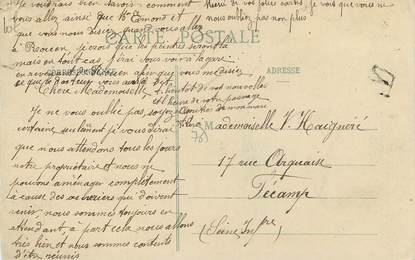 Je voudrais bien savoir comment
vous allez ainsi que
que vous nous disiez quand vous allez
à je crois que les peintres seront là
mais en tout cas j'irai vous voir à la gare
en afin que vous me disiez
ce que le Docteur vous a dit
merci de vos jolies cartes je vois que vous ne
nous oubliez pas non plus
CARTE POSTALE
CORRESPONDANCE
ADRESSE
Chère Mademoiselle
à bientôt de vos nouvelles
et l'heure de votre passage
Je ne vous oublie pas, soyez
certaine seulement je vous dirai
que nous attendons tous les jours
notre propriétaire et nous ne
pouvons aménager complètement
à cause des ouvriers qui doivent
venir, nous sommes toujours en
attendant, à part cela nous allons
très bien et nous sommes contents
d'être réunis
Mademoiselle V. Haigneré
17 rue Arquaise
Fécamp
(Seine Infre)